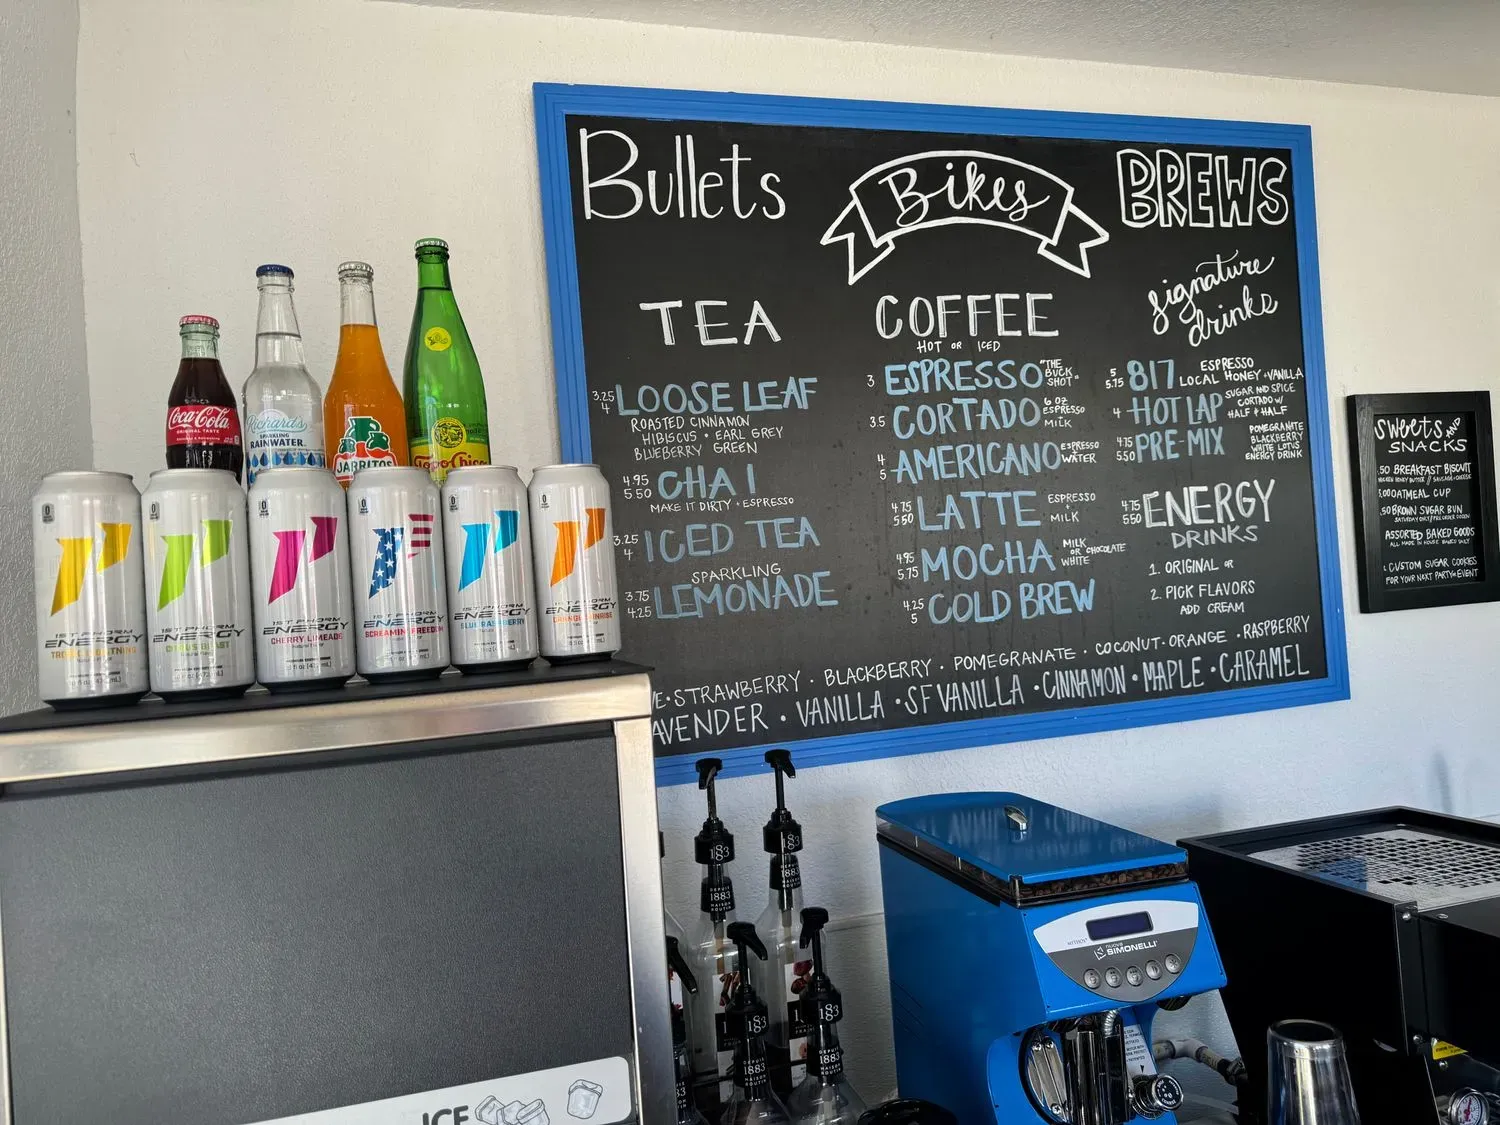 Bullets Bikes BREWS
TEA
3.25
4
LOOSE LEAF
ROASTED CINNAMON
HIBISCUS • EARL GREY
BLUEBERRY GREEN
4.95
5.50
CHAI
MAKE IT DIRTY + ESPRESSO
3.25
4
ICED TEA
3.75
4.25
SPARKLING
LEMONADE
COFFEE
HOT OR ICED
3 ESPRESSO "THE BUCK SHOT"
3.5 CORTADO 6 OZ ESPRESSO MILK
4
5
AMERICANO ESPRESSO WATER
4.75
5.50
LATTE ESPRESSO + MILK
4.95
5.75
MOCHA MILK OR CHOCOLATE WHITE
4.25
5
COLD BREW
signature drinks
5
5.75
817 ESPRESSO LOCAL HONEY + VANILLA
4 HOT LAP SUGAR AND SPICE CORTADO W/ HALF + HALF
4.75
5.50
PRE-MIX POMEGRANATE BLACKBERRY WHITE LOTUS ENERGY DRINK
4.75
5.50
ENERGY
DRINKS
1. ORIGINAL OR
2. PICK FLAVORS
ADD CREAM
• STRAWBERRY • BLACKBERRY • POMEGRANATE • COCONUT • ORANGE • RASPBERRY
AVENDER • VANILLA • SF VANILLA • CINNAMON • MAPLE • CARAMEL
sweets AND
SNACKS
.50 BREAKFAST BISCUIT
OATMEAL CUP
.50 BROWN SUGAR BUN
ASSORTED BAKED GOODS
ALL MADE IN HOUSE BAKED DAILY
CUSTOM SUGAR COOKIES
FOR YOUR NEXT PARTY OR EVENT
Coca-Cola
ORIGINAL TASTE
Richard's
SPARKLING
RAINWATER
JARRITOS
Topo Chico
1ST PHORM
ENERGY
TROPIC LIGHTNING
1ST PHORM
ENERGY
CITRUS BLAST
1ST PHORM
ENERGY
CHERRY LIMEADE
1ST PHORM
ENERGY
SCREAMIN FREEDOM
1ST PHORM
ENERGY
BLUE RASPBERRY
1ST PHORM
ENERGY
ORANGE SUNRISE
ICE
183
183
DEPUIS
1883
MAISON
ROUTIN
DEPUIS
1883
MAISON
ROUTIN
183
183
DEPUIS
1883
DEPUIS
1883
MYTHOS
nuova
SIMONELLI